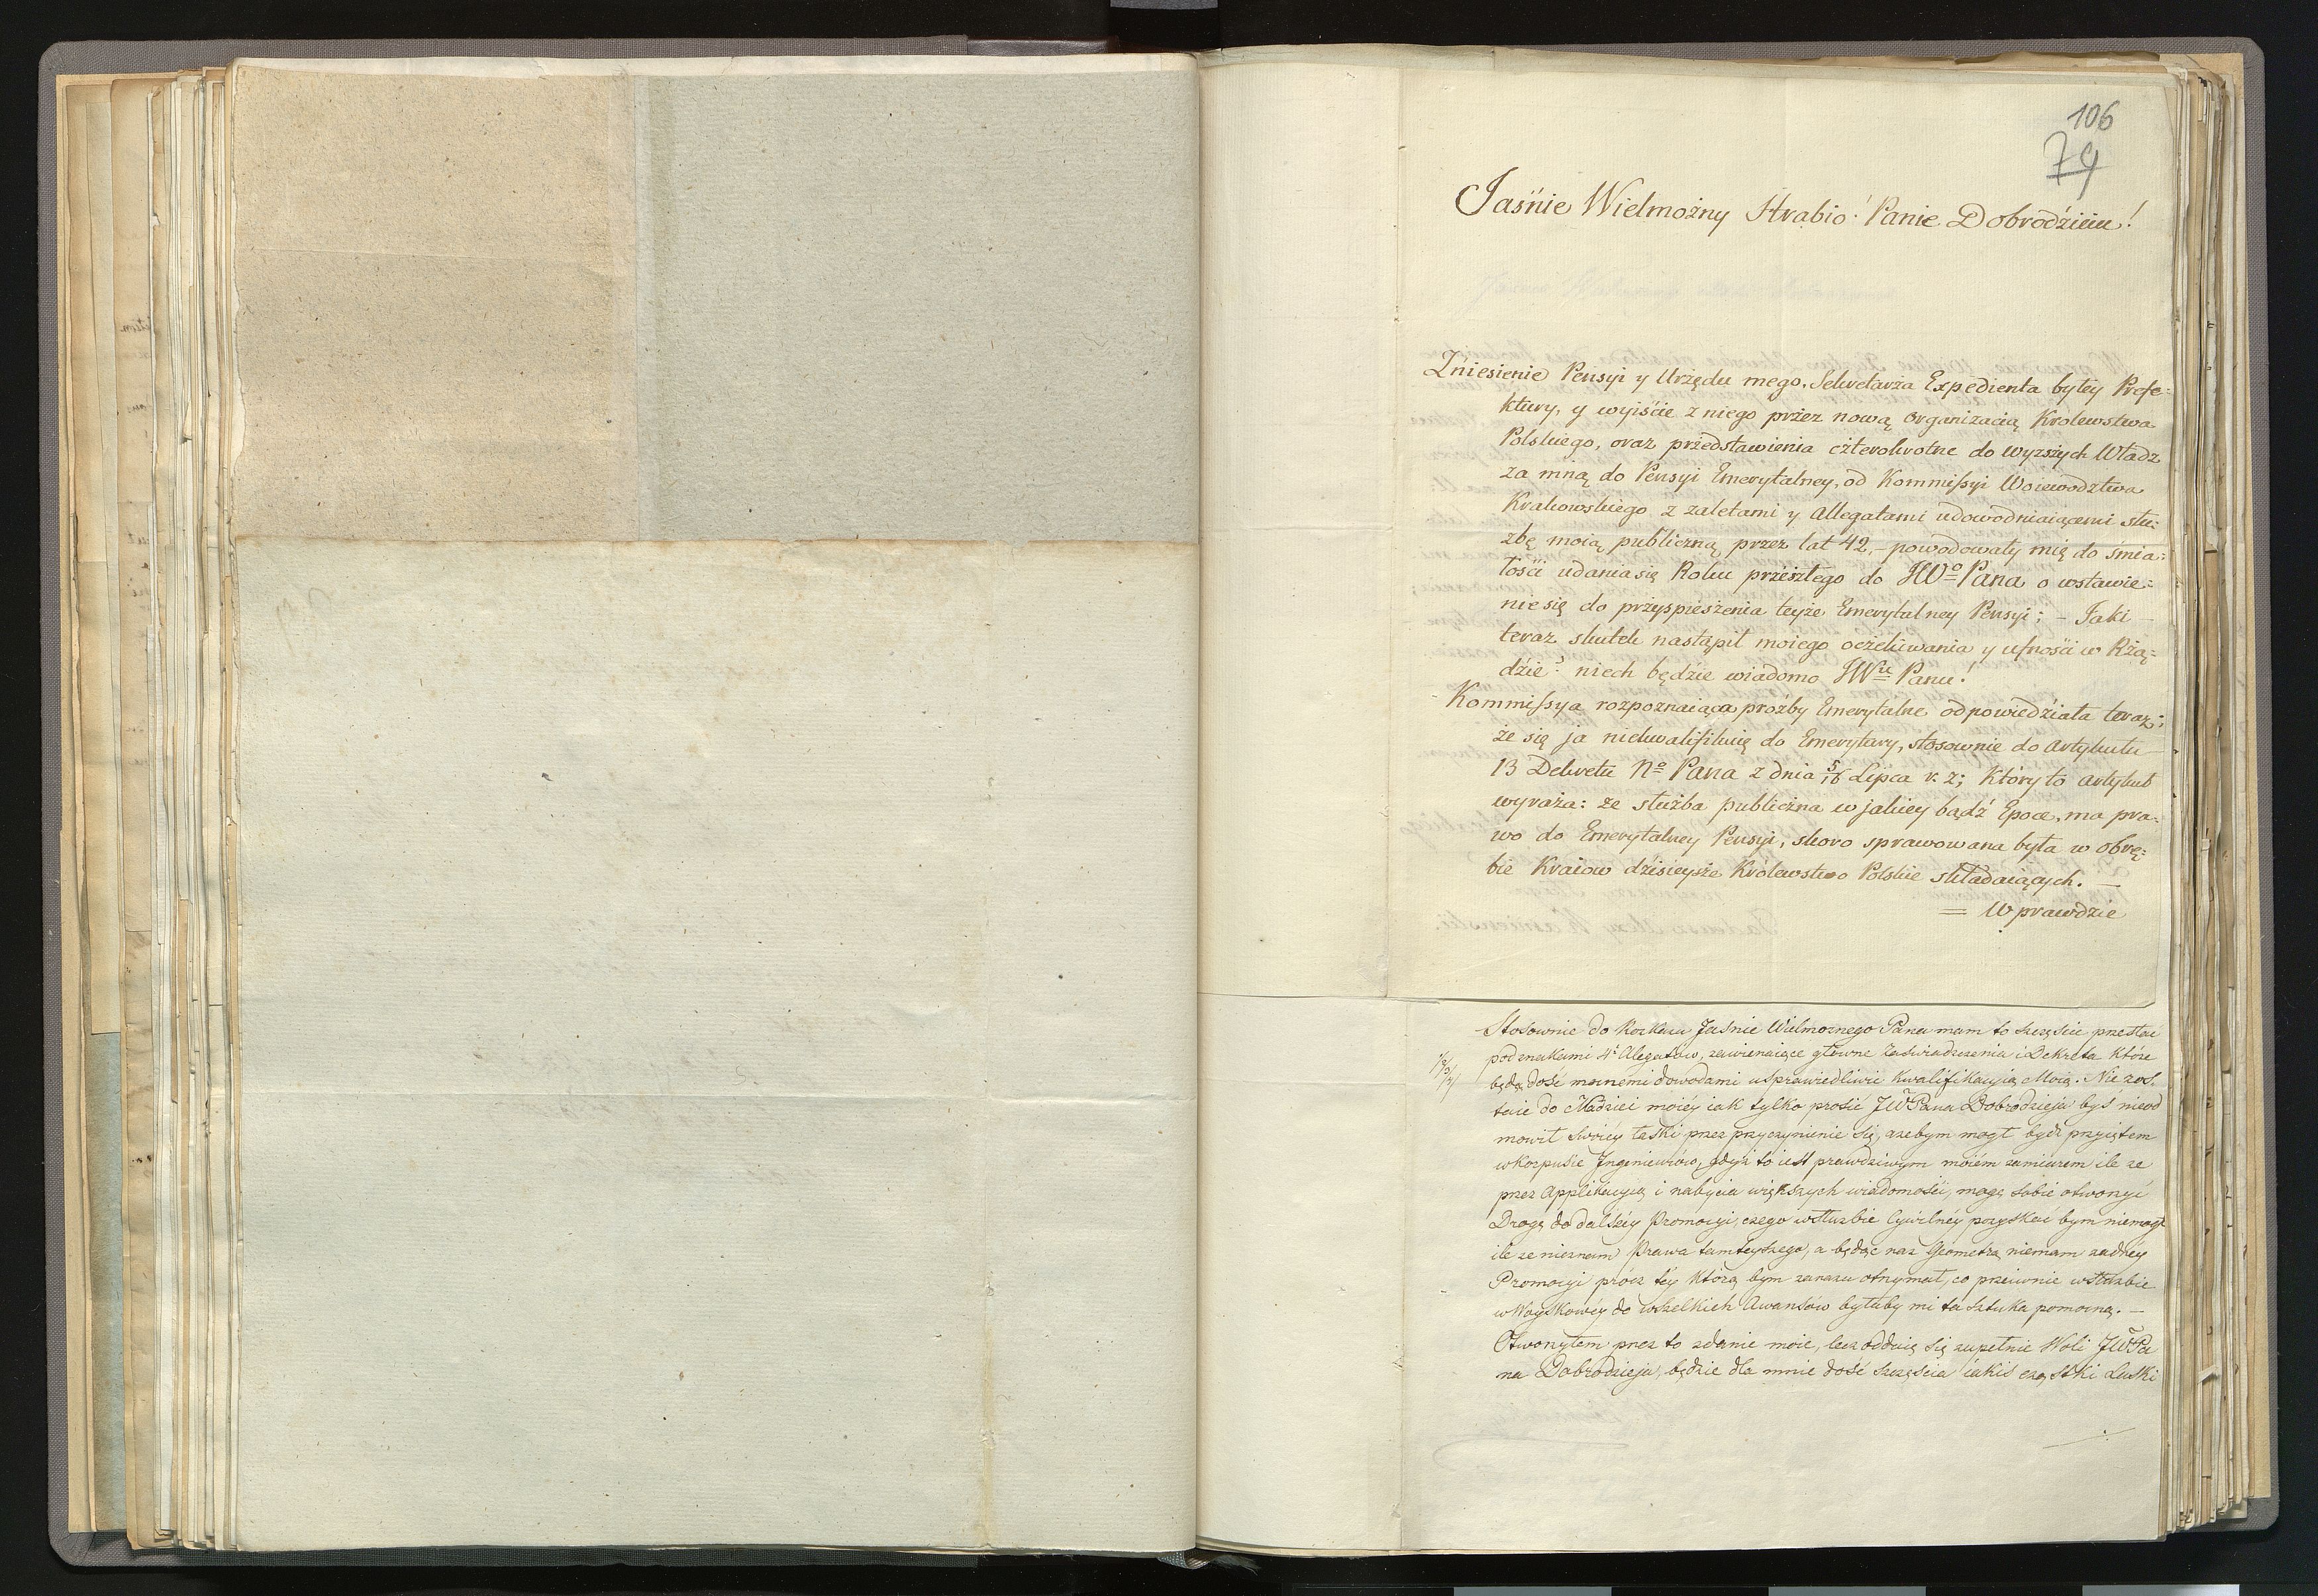 106
79
Jaśnie Wielmożny Hrabio! Panie Dobrodzieiu!
Zniesienie Pensyi y Urzędu mego, Sekretarza Expedienta byłey Prefe-
ktury, y wyiście z niego przez nową Organizacią Krolewstwa
Polskiego, oraz przedstawienia czterokrotne do wyzszych Władz
za mną do Pensyi Emerytalney, od Kommissyi Woiewodztwa
Krakowskiego z zaletami y Allegatami udowodniaiącemi słu-
zbę moią publiczną przez lat 42, – powodowały mię do śmia-
łości udania się Roku przeszłego do JWo Pana o wstawie-
nie się do przyspieszenia teyże Emerytalney Pensyi; – Jaki
teraz skutek nastąpił moiego oczekiwania y ufności w Rzą-
dzie? niech będzie wiadomo JWu Panu!
Kommissya rozpoznaiąca prózby Emerytalne odpowiedziała teraz;
że się ja niekwalifikuię do Emerytury, stosownie do Artykułu
13 Dekretu No Pana z dnia 5/16 Lipca r. z; Który to artykuł
wyraża: ze służba publiczna w jakiey bądź Epoce, ma pra-
wo do Emerytalney Pensyi, skoro sprawowana była w obrę-
bie Kraiow dzisieysze Królewstwo Polskie składaiących. —
= Wprawdzie
Stosownie do Rozkazu Jaśnie Wielmoznego Pana mam to szczęście przesłać
pod znakami 4 Alegatów, zawieraiące główne Zaświadczenia i Dekreta które
będą dość mocnemi dowodami usprawiedliwić kwalifikacyią Moią. Nie zos-
taie do Nadziei moiéy iak tylko prosić JWPana Dobrodzieja byś nieod
mowił Swoiéy łaski przez przyczynienie się, azebym mogł bydź przyiętem
w Korpusie Jngenieurów, gdyż to iest prawdziwym moiém zamiarem ile ze
przez Applikacyią i nabycia większych wiadomości, mogę sobie otworzyć
Drogę do dalszéy Promocyi, czego w służbie Cywilnéy pozyskać bym niemogł
ile ze nieznam Prawa tamteyszego, a będąc raz Geometrą niemam zadnéy
Promocyi prócz téy którą bym zarazu otrzymał, co przeciwnie w służbie
w Woyskowéy do wszelkich Awansów byłaby mi ta sztuka pomocną. —
Otworzyłem przez to zdanie moie, lecz oddaię się zupełnie Woli JWPa
na Dobrodzieja, będzie dla mnie dość szczęścia iakiś cząstki Łaski